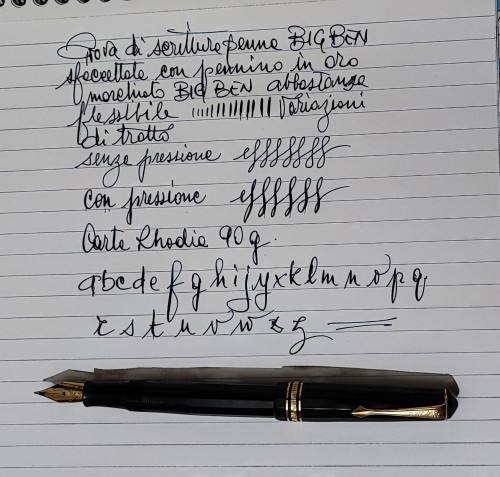 Prova di scritture penna BIG BEN
sfaccettata con pennino in oro
marchiato BIG BEN abbastanza
flessibile variazioni
di tratto
senza pressione
con pressione
Carta Rhodia 90 g.
abcdefghijyxklmnopq
rstuvwxz